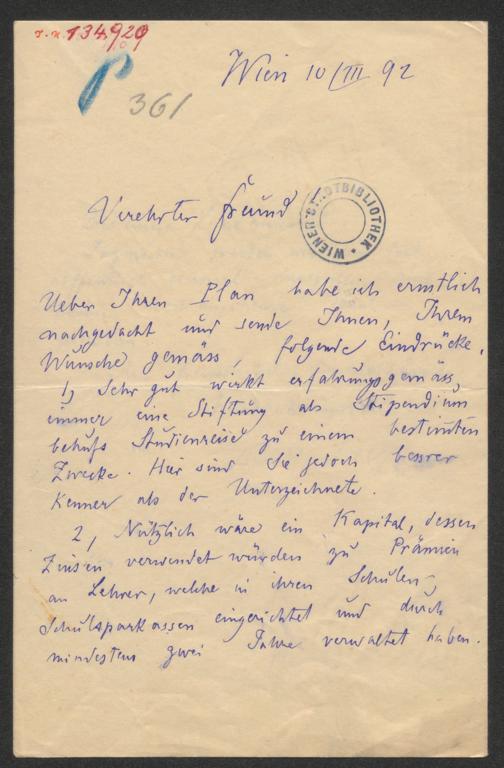 134929
361
Wien 10/III 92
WIENER STADTBIBLIOTHEK
Verehrter Freund!
Ueber Ihren Plan habe ich ernstlich
nachgedacht und sende Ihnen, Ihrem
Wunsche gemäss, folgende Eindrücke.
1, Sehr gut wirkt erfahrungsgemäss,
immer eine Stiftung als Stipendium
behufs Studienreise zu einem bestimten
Zwecke. Hier sind Sie jedoch bessrer
Kenner als der Unterzeichnete.
2, Nützlich wäre ein Kapital, dessen
Zinsen verwendet würden zu Prämien
an Lehrer, welche in ihren Schulen
Schulsparkassen eingerichtet und durch
mindestens zwei Jahre verwaltet haben.